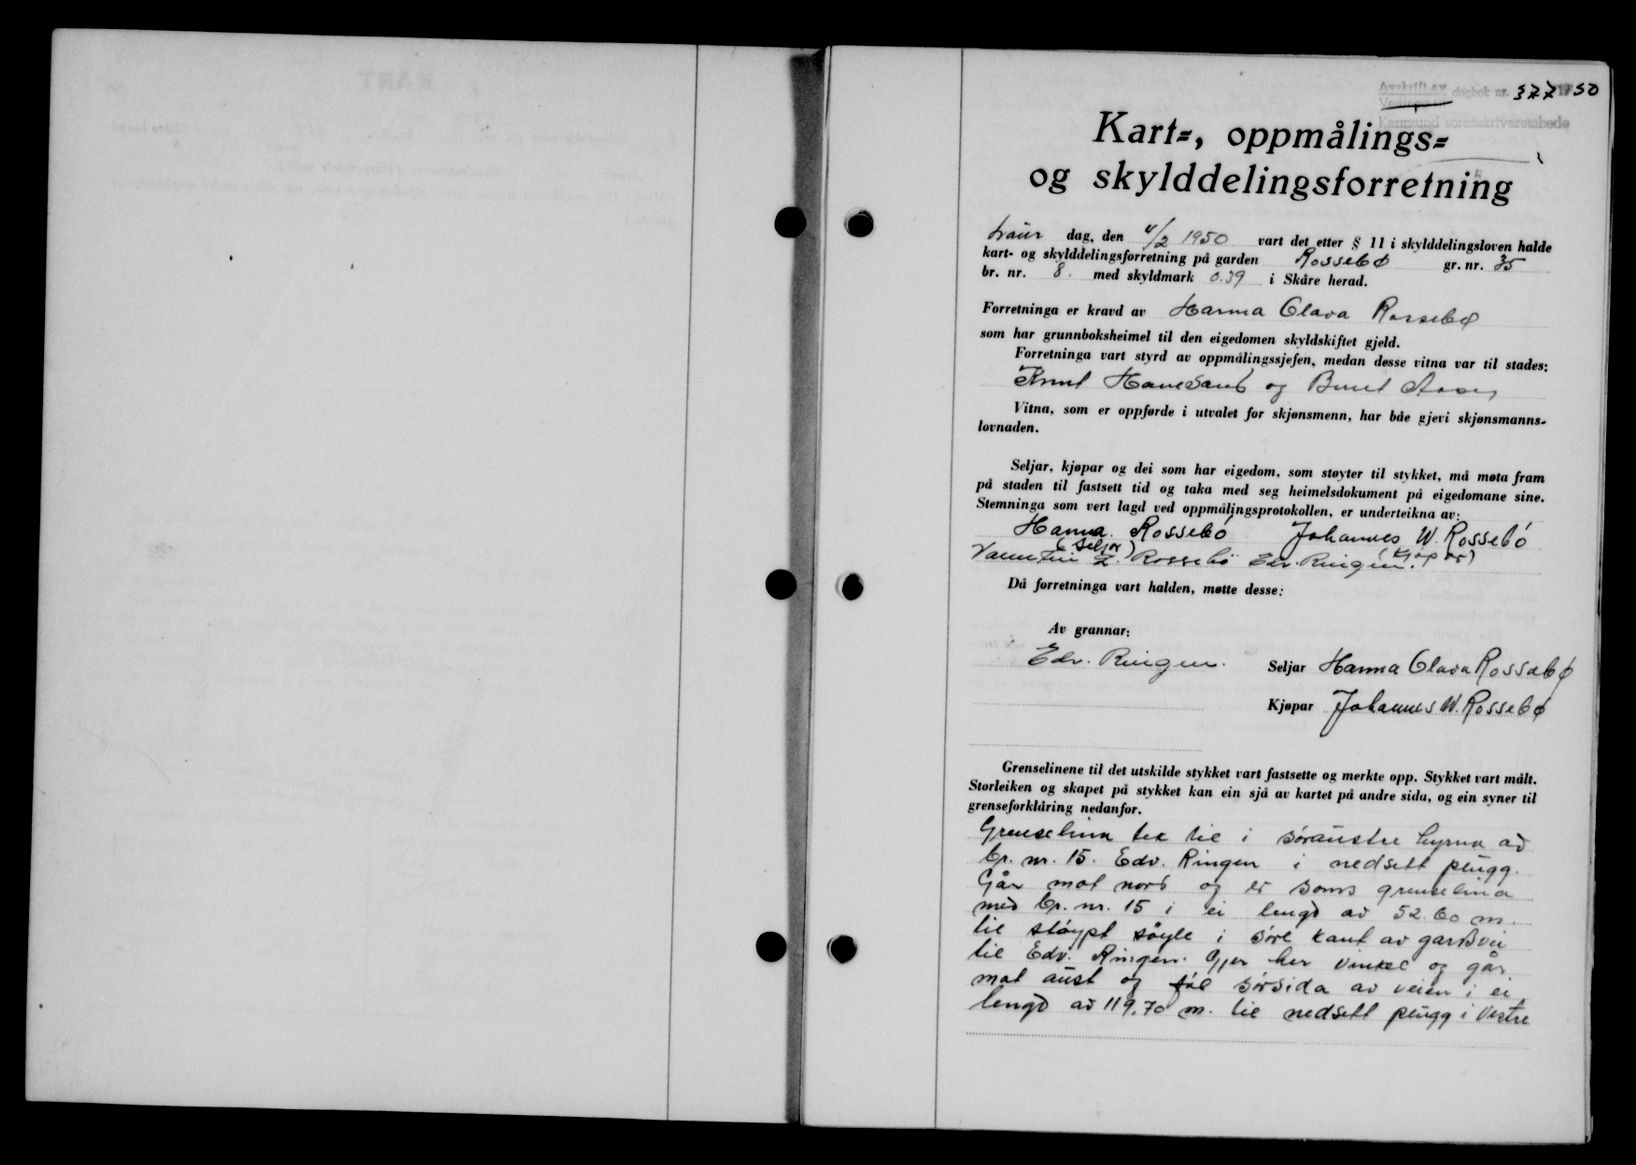 Avskrift av dagbok nr. 377 1950
Vedlegg
Karmsund sorenskriverembede
Kart-, oppmålings-
og skylddelingsforretning
Laur dag, den 4/2 1950 vart det etter § 11 i skylddelingsloven halde
kart- og skylddelingsforretning på garden Rossebø gr. nr. 35
br. nr. 8. med skyldmark 0.39 i Skåre herad.
Forretninga er kravd av Hanna Olava Rossebø
som har grunnboksheimel til den eigedomen skyldskiftet gjeld.
Forretninga vart styrd av oppmålingssjefen, medan desse vitna var til stades:
Knut og
Vitna, som er oppførde i utvalet for skjønsmenn, har båe gjevi skjønsmanns-
lovnaden.
Seljar, kjøpar og dei som har eigedom, som støyter til stykket, må møta fram
på staden til fastsett tid og taka med seg heimelsdokument på eigedomane sine.
Stemninga som vert lagd ved oppmålingsprotokollen, er underteikna av:
Hanna Rossebó Johannes W. Rossebó
(Seljar) (Kjøpar)
Rossebö Edv. Ringen.
Då forretninga vart halden, møtte desse:
Av grannar:
Edv. Ringen. Seljar Hanna Olava Rossabø
Kjøpar Johannes W. Rossebø
Grenselinene til det utskilde stykket vart fastsette og merkte opp. Stykket vart målt.
Storleiken og skapet på stykket kan ein sjå av kartet på andre sida, og ein syner til
grenseforklåring nedanfor.
Grenselina tek til i søraustre hyrna av
br. nr. 15. Edv. Ringen i nedsett plugg.
Går mot nord og er sams grenselina
med br. nr. 15 i ei lengd av 52.60 m.
til støypt søyle i søre kant av gardsvei
til Edv. Ringen. Gjer her vinkel og går
mot aust og føl sørsida av veien i ei
lengd av 119.70 m. til nedsett plugg i vestre